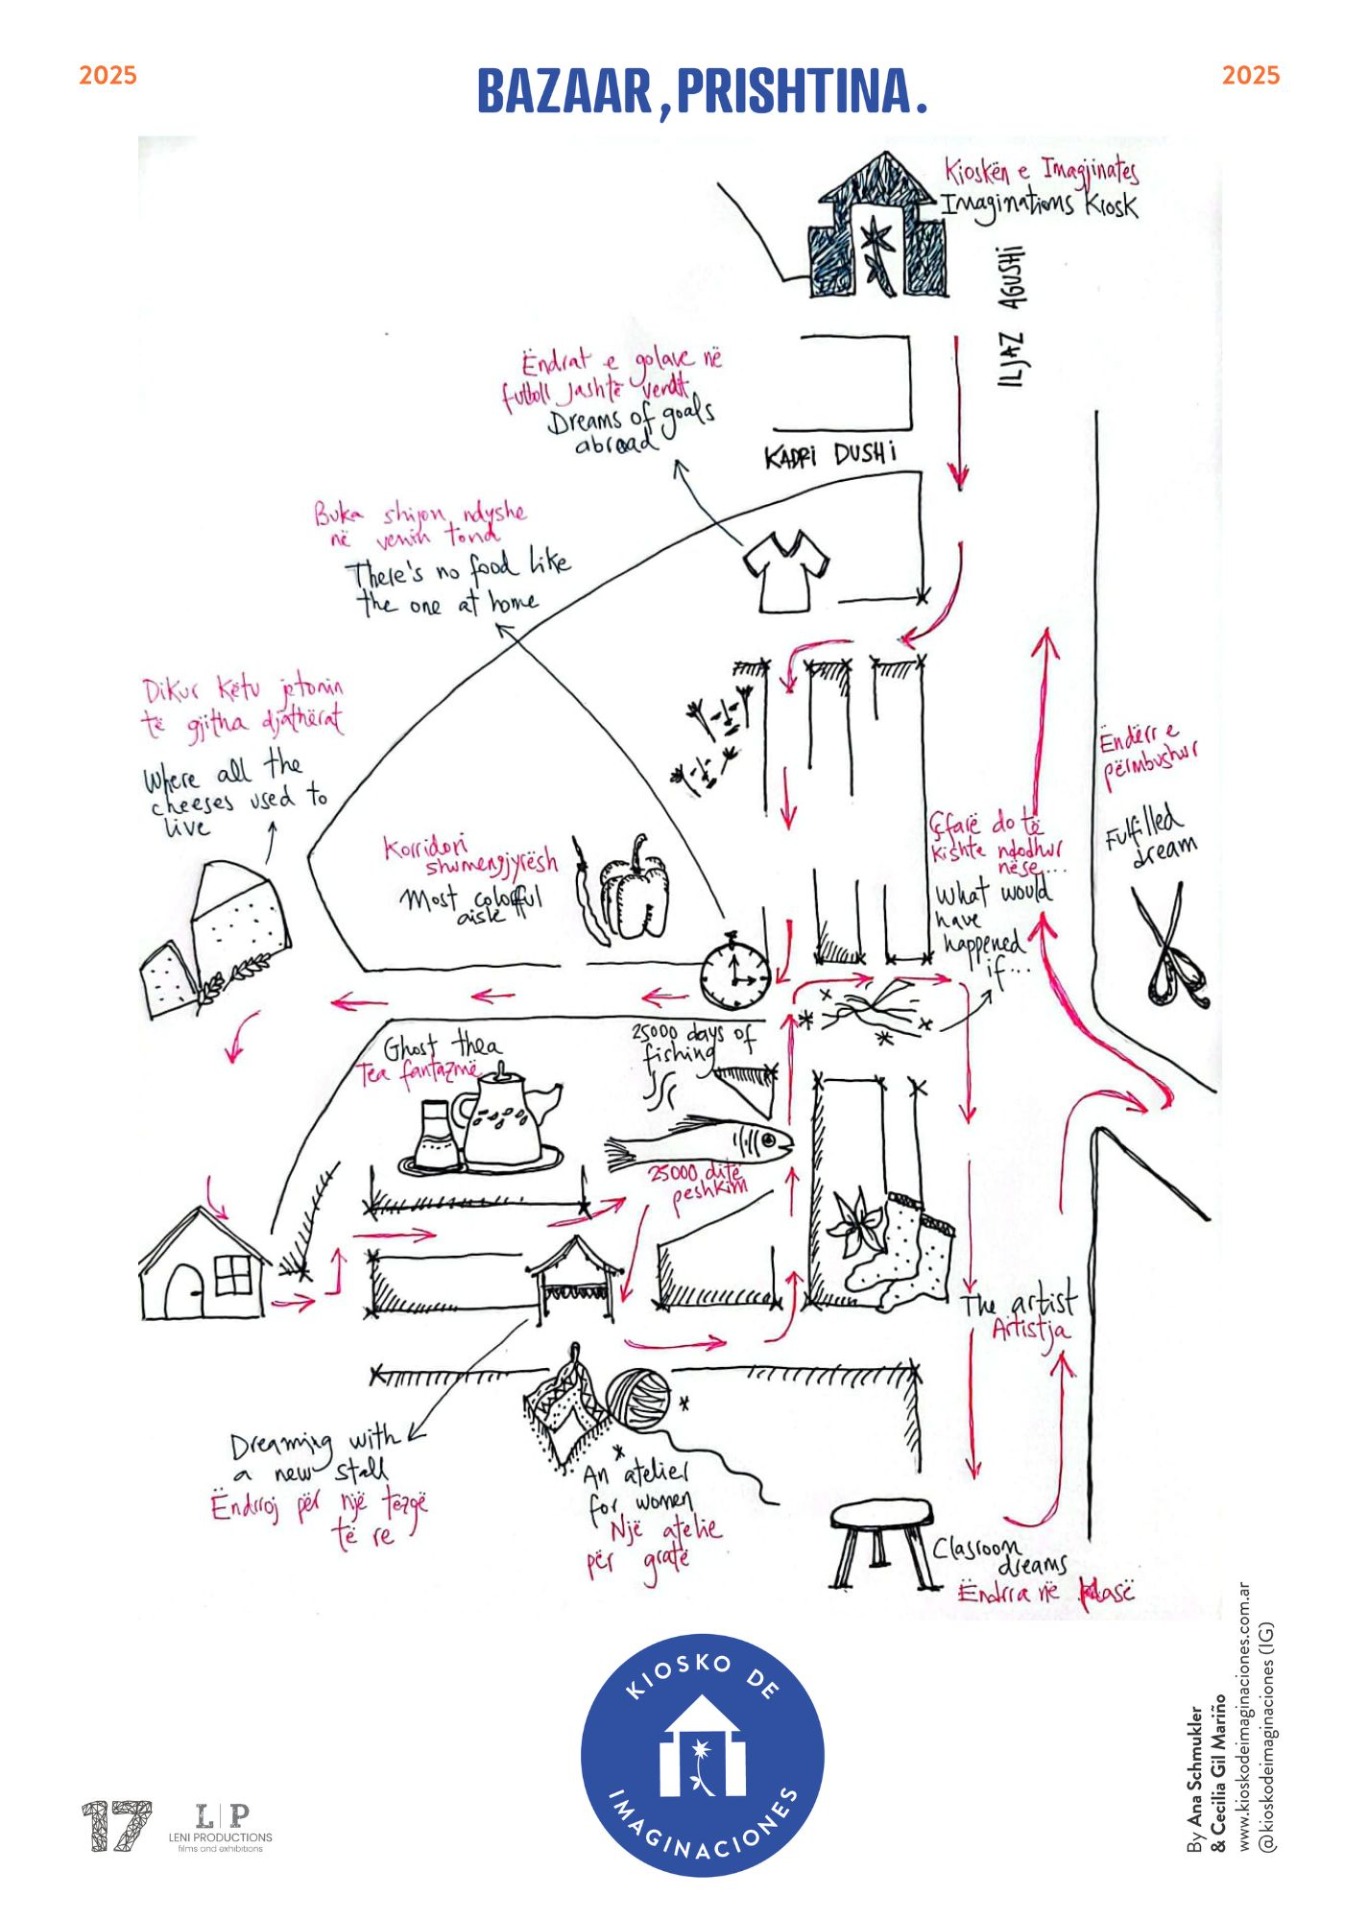 2025
BAZAAR, PRISHTINA.
2025
Kioskën e Imagjinates
Imaginations Kiosk
ILJAZ AGUSHI
Ëndrat e golave në
futboll jashtë vendit
Dreams of goals
abroad
KADRI DUSHI
Buka shijon ndyshe
në venin tond
There's no food like
the one at home
Dikur këtu jetonin
të gjitha djathërat
Where all the
cheeses used to
live
Korridori
shumengjyrësh
Most colorful
aisle
Ëndërr e
përmbushur
Fulfilled
dream
Çfarë do të
kishte ndodhur
nëse...
What would
have
happened
if...
Ghost thea
Tea fantazmë
25000 days of
fishing
25000 ditë
peshkim
The artist
Artistja
Dreaming with
a new stall
Ëndrroj për një tezgë
të re
An atelier
for women
Një atelie
për gratë
Clasroom
dreams
Ëndrra në klasë
KIOSKO DE
IMAGINACIONES
17
L|P
LENI PRODUCTIONS
films and exhibitions
By Ana Schmukler
& Cecilia Gil Mariño
www.kioskodeimaginaciones.com.ar
@kioskodeimaginaciones (IG)